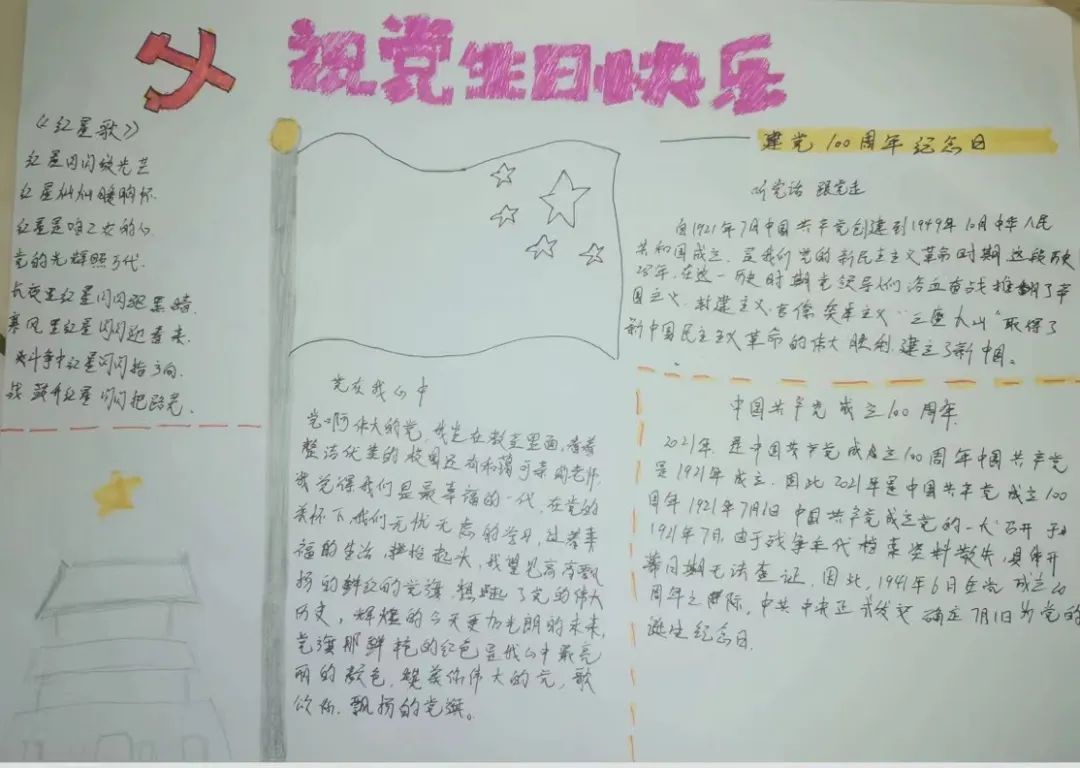 祝党生日快乐
《红星歌》
红星闪闪放光芒
红星灿灿暖胸怀
红星是咱工农的心
党的光辉照万代
长夜里红星闪闪驱黑暗
寒风里红星闪闪迎春来
斗争中红星闪闪指方向
红星闪闪把路
建党100周年纪念日
听党话 跟党走
自1921年7月中国共产党创建到1949年10月中华人民
共和国成立，是我们党的新民主主义革命时期这段历史
28年，在这一历史时期党领导人们浴血奋战推翻了帝
国主义，封建主义，官僚资本主义"三座大山"取得了
新中国民主主义革命的伟大胜利，建立了新中国。
党在我心中
党啊伟大的党，我坐在教室里面，看着
整洁优美的校园还有和蔼可亲的老师，
我觉得我们是最幸福的一代，在党的
关怀下，我们无忧无虑的学习，过着幸
福的生活，抬起头，我望见高高飘
扬的鲜红的党旗，想起了党的伟大
历史，辉煌的今天更为光明的未来，
党旗那鲜艳的红色是我心中最亮
丽的颜色，赞美你伟大的党，歌
颂你，飘扬的党旗。
中国共产党成立100周年
2021年，是中国共产党成立100周年中国共产党
是1921年成立，因此2021年是中国共产党成立100
周年1921年7月1日中国共产党成立党的一大召开于
1921年7月，由于战争年代档案资料散失，具体开
幕日期无法查证，因此，1941年6月在党成立20
周年之际，中共中央正式发文确定7月1日为党的
诞生纪念日。